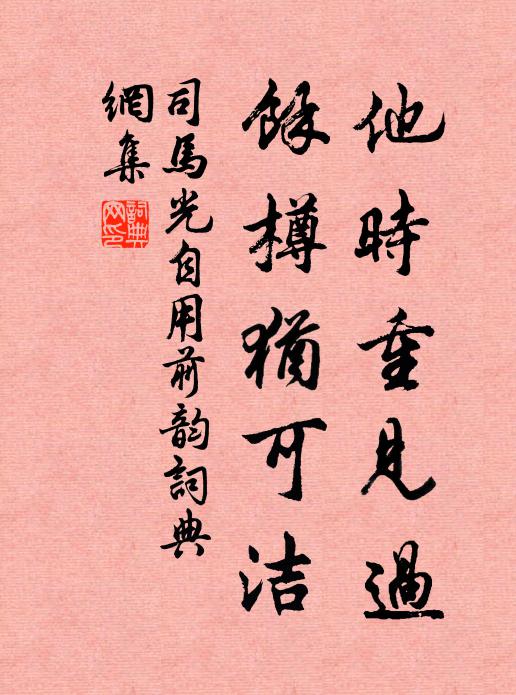 他時重見過
餘樽猶可洁
司馬光自用前韵詞典
網集
詞典網印